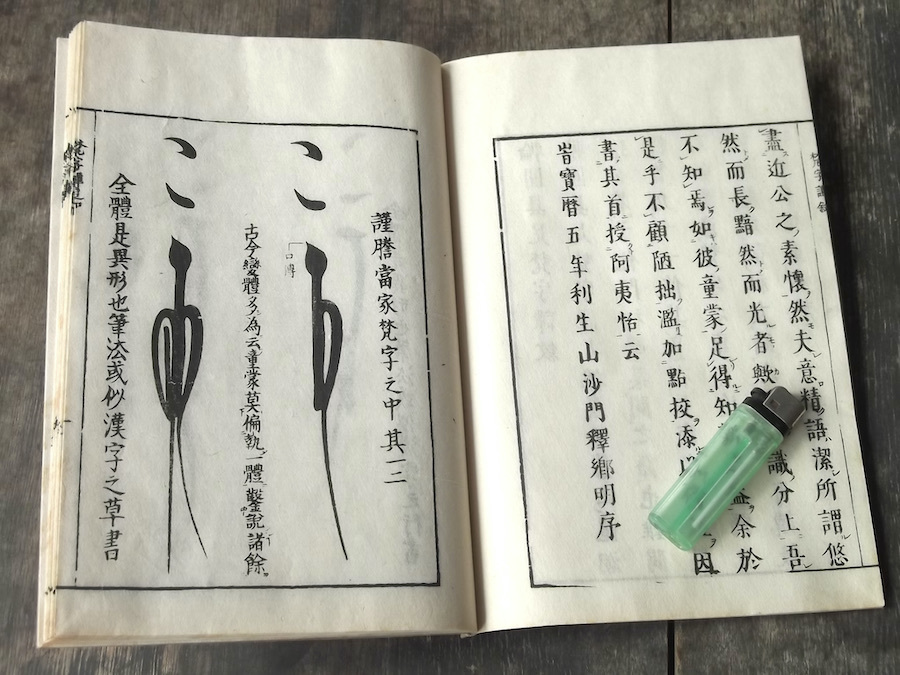 盡近公之素懷然夫意精語潔所謂悠
然而長黯然而光者歟 識分上吾
不知焉如彼童蒙足得知 益余於
是乎不顧陋拙濫加點挍添 因
書其首授阿夷恬云
旹寶暦五年利生山沙門釋鄉明序
謹謄當家梵字之中其一二
口傳
古今變體多為云童蒙莫偏執一體鑿說諸餘
全體是異形也筆法或似漢字之草書